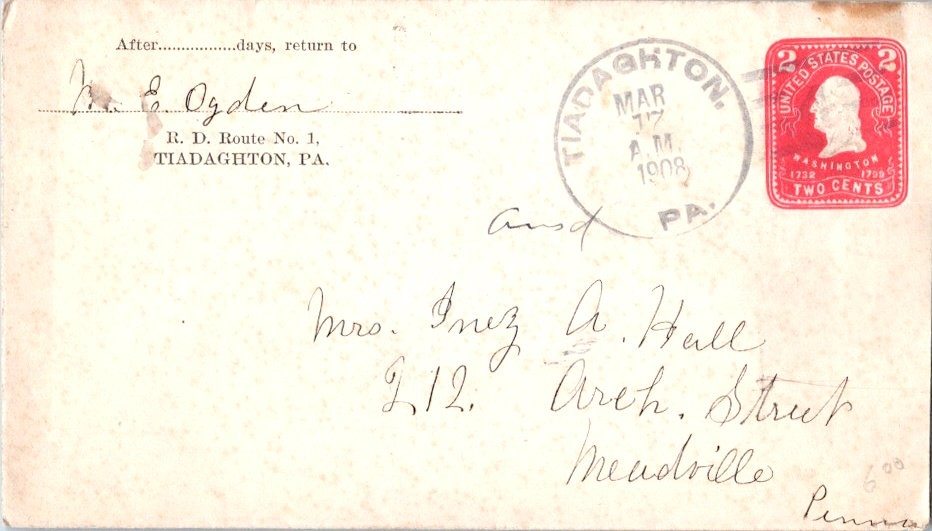 After.................days, return to
E Ogden
R. D. Route No. 1,
TIADAGHTON, PA.
TIADAGHTON,
MAR
17
A.M.
1908
PA.
2 2
UNITED STATES POSTAGE
WASHINGTON
1732 1799
TWO CENTS
Mrs. Inez A. Hall
212. Arch. Street
Meadville
Penna
6 00